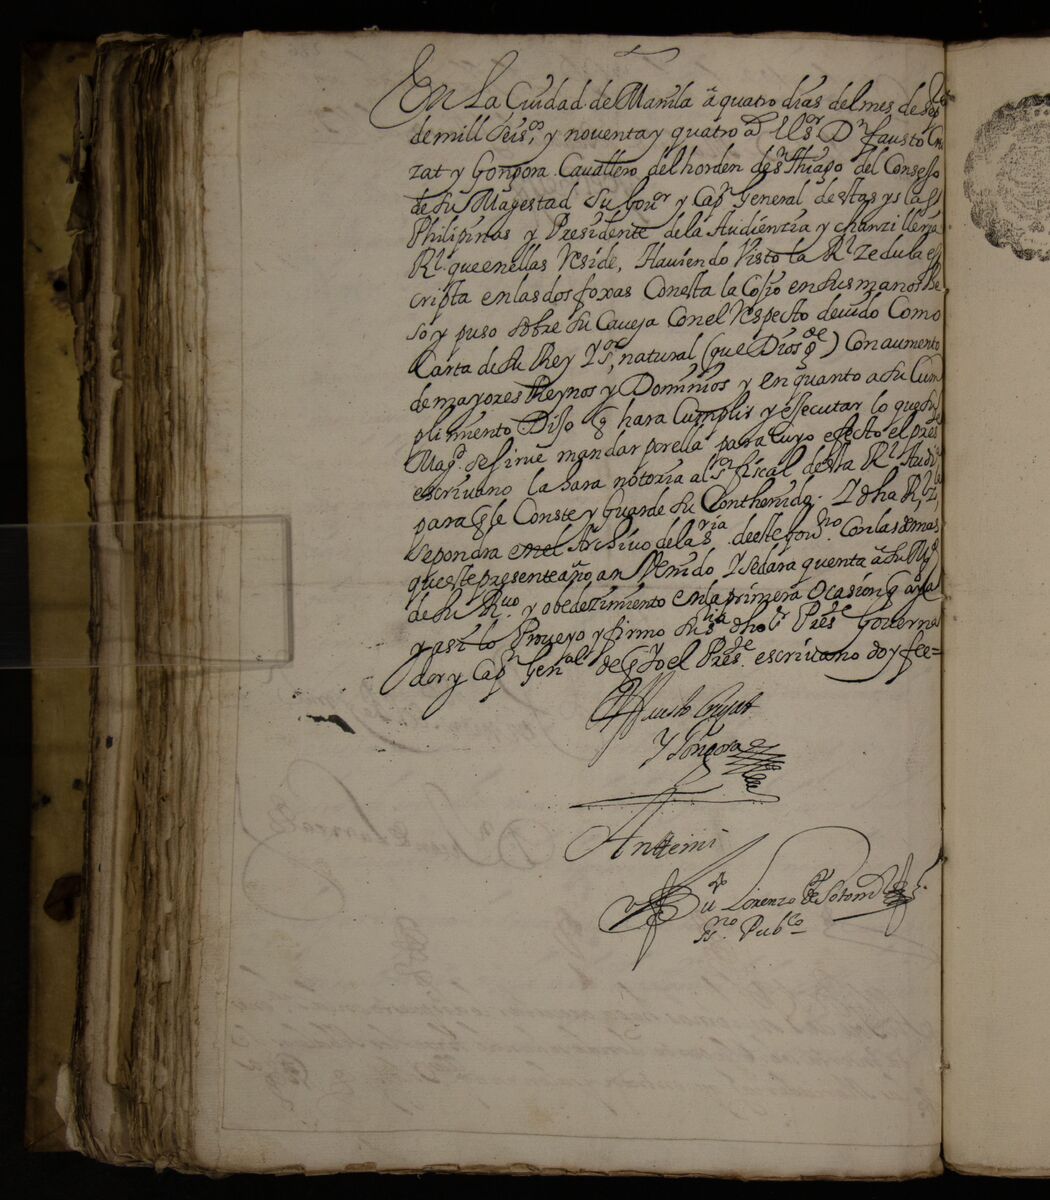 En La Ciudad de Manila â quatro dias del mes de
de mill Seisos, y noventa y quatro as El sr Dn fausto Cru
zat y Gongora Cavallero del horden de sn thiago del Consejo
de su Magestad Su Govor y Capn General destas yslas
Philipinas y Presidente dela Audienzia y chanzilleria
Rl. que en ellas Reside, Haviendo Visto la Rl Zedula es
cripta en las dos foxas Con esta la Cojio en sus manos Be
so y puso sobre su Caveza Con el Respecto devido Como
Carta de su Rey Y sor, natural (que Dios gde) Con aumento
de mayores Reynos y Dominios y en quanto a su Cum
plimiento Dijo q hara Cumplir y essecutar lo que su
Magd. se sirve mandar por ella para cuyo efecto el preste
escrivano la hara notoria al sor fiscal desta Rl Audia
para q le Conste y Guarde su Conthenido. Y dha Rl Zla
se pondra en el Archivo dela sria deste Govno Con las demas
que este presente año an Venido Y se dara quenta â su Mgd
de su Rvo. y obedezimiento en la primera Ocasion q aya
y assi lo Proveyo y firmo su sria dho sr Preste Governa
dor y Capn Genal de q Yo el Preste escrivano doy fee=
Fausto Cruzat
Y Gongora
Antemi
Lorenzo de Sotomor
Essno Pubco